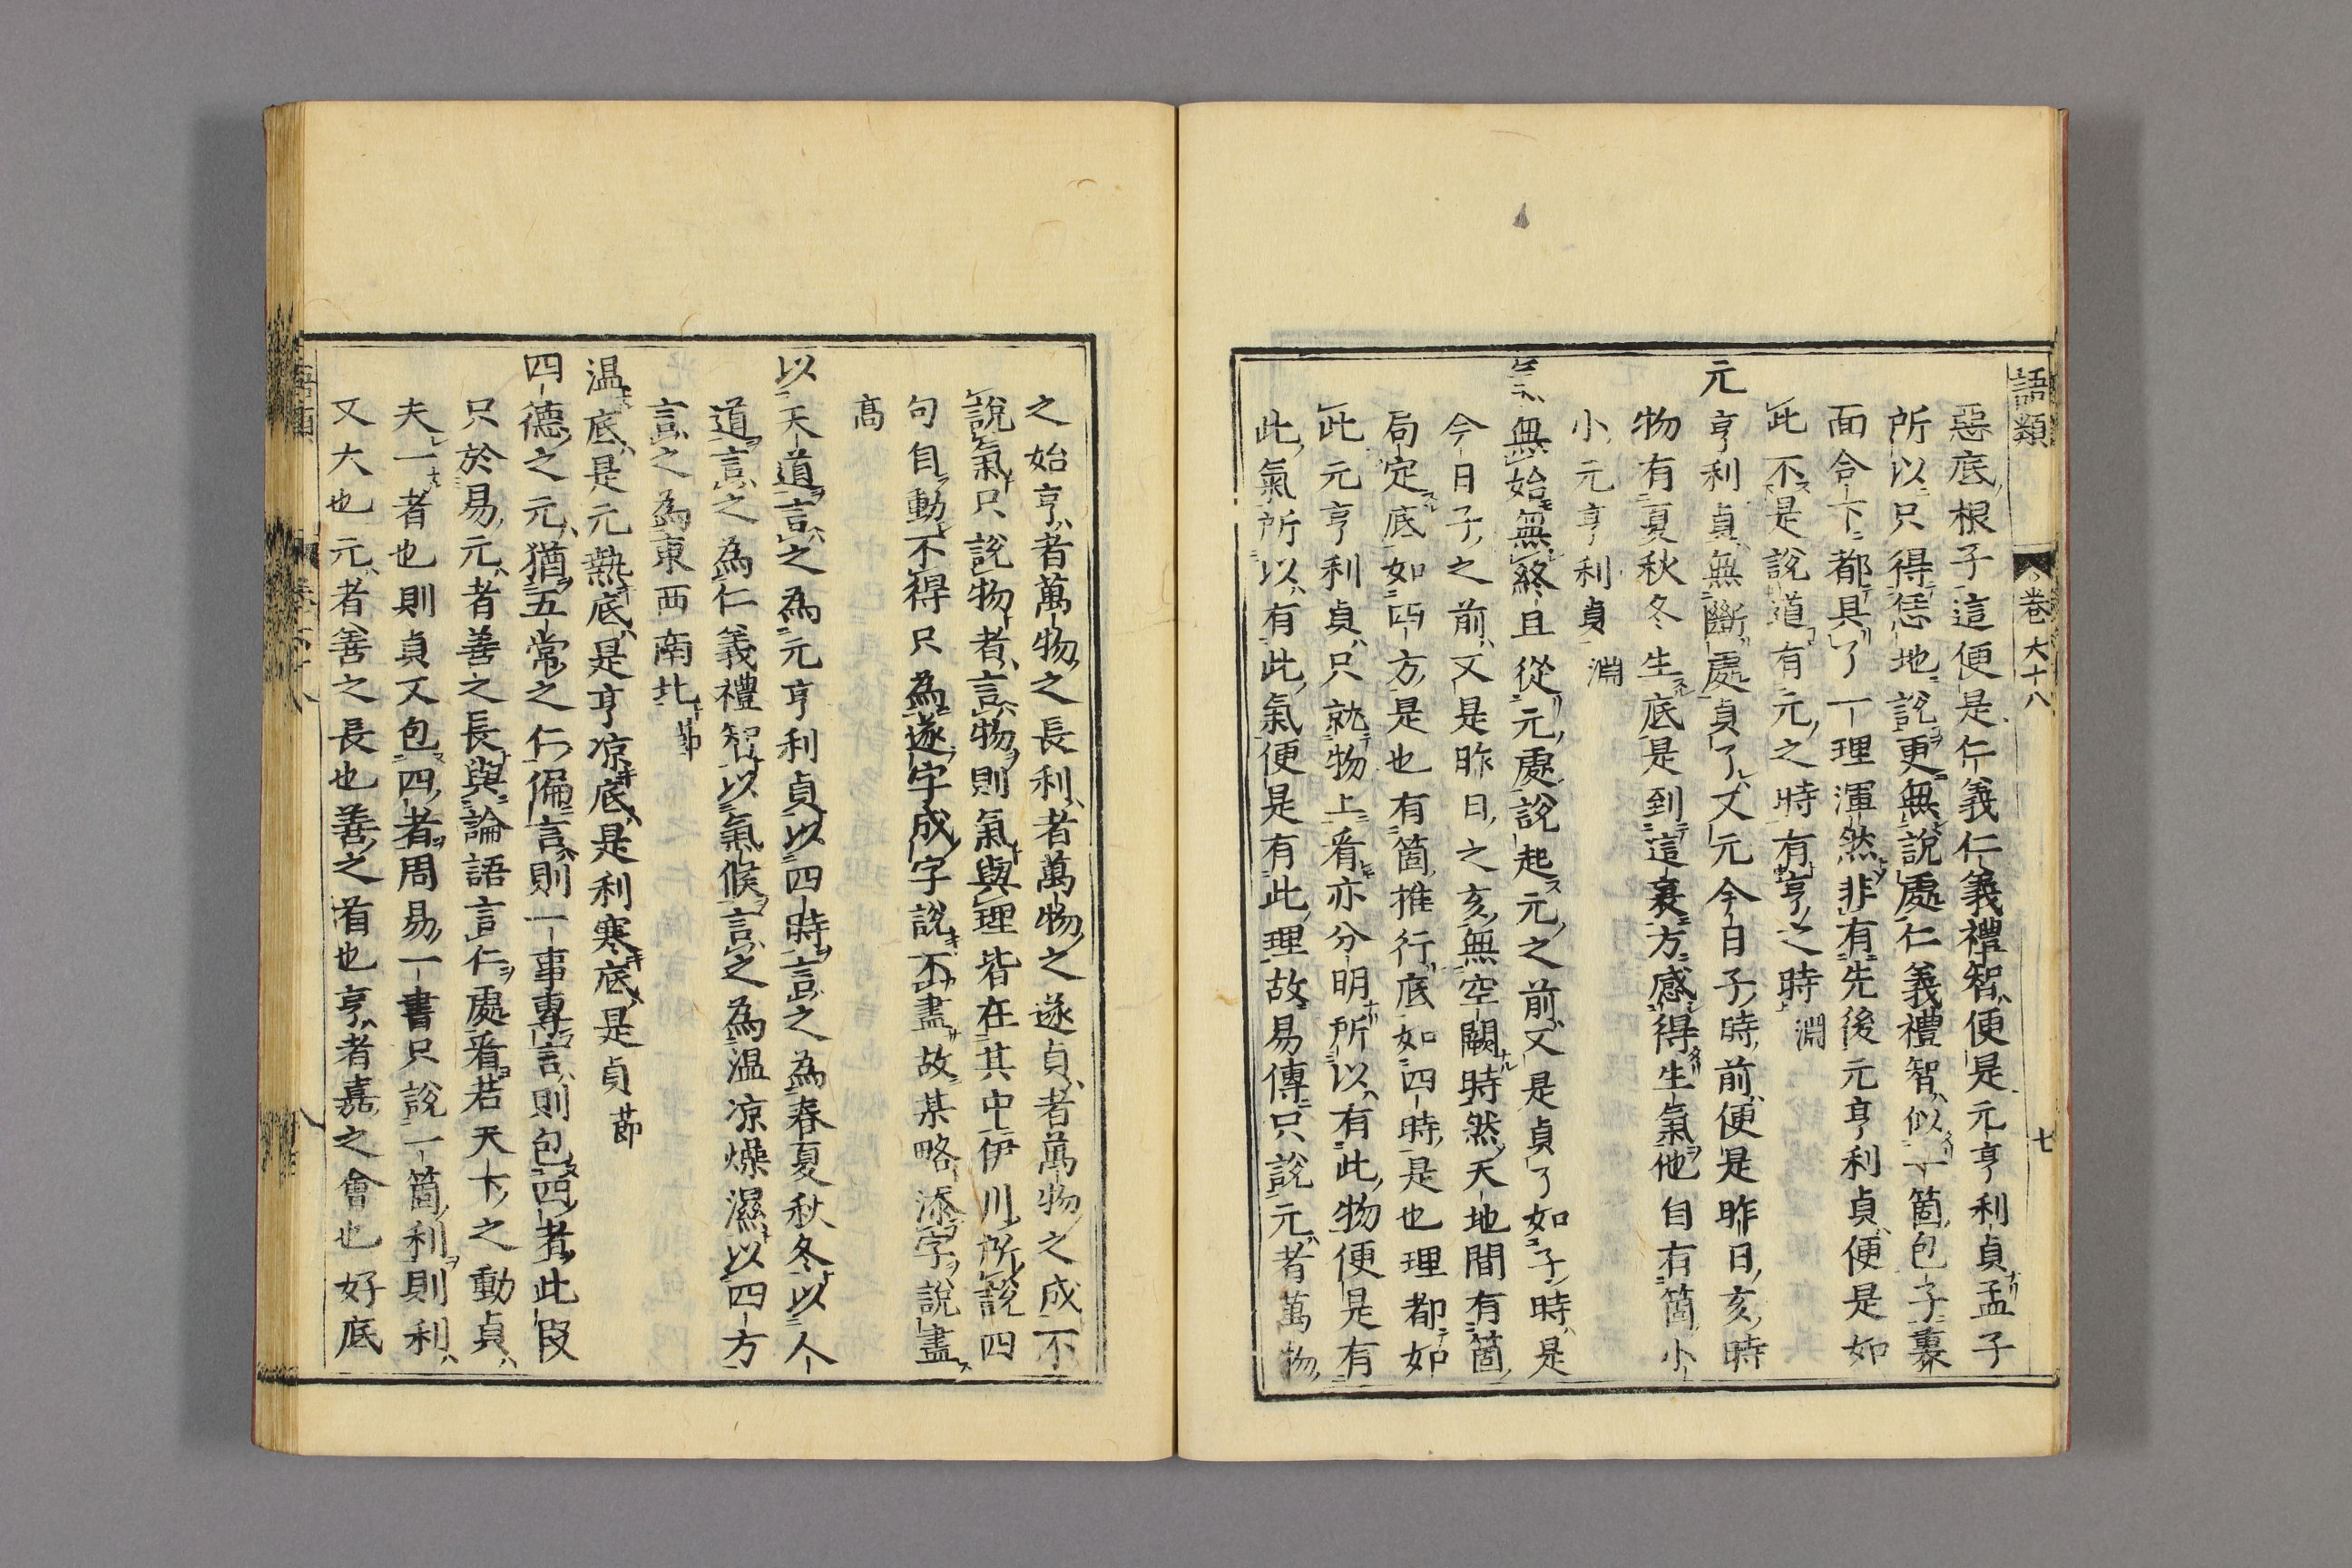 語類 卷六十八 七
惡底根子這便是仁義仁義禮智便是元亨利貞孟子
所以只得恁地說更無說處仁義禮智似一箇包子裏
面合下都具了一理渾然非有先後元亨利貞便是如
此不是說道有元之時有亨之時 淵
元亨利貞無斷處貞了又元今日子時前便是昨日亥時
物有夏秋冬生底是到這裏方感得生氣他自有箇小
小元亨利貞 淵
氣無始無終且從元處說起元之前又是貞了如子時是
今日子之前又是昨日之亥無空闕時然天地間有箇
局定底如四方是也有箇推行底如四時是也理都如
此元亨利貞只就物上看亦分明所以有此物便是有
此氣所以有此氣便是有此理故易傳只說元者萬物
之始亨者萬物之長利者萬物之遂貞者萬物之成不
說氣只說物者言物則氣與理皆在其中伊川所說四
句自動不得只為遂字成字說不盡故某略添字說盡
高
以天道言之為元亨利貞以四時言之為春夏秋冬以人
道言之為仁義禮智以氣候言之為温凉燥濕以四方
言之為東西南北 節
温底是元熱底是亨凉底是利寒底是貞 節
四德之元猶五常之仁偏言則一事專言則包四者此段
只於易元者善之長與論語言仁處看若天下之動貞
夫一者也則貞又包四者周易一書只說一箇利則利
又大也元者善之長也善之首也亨者嘉之會也好底